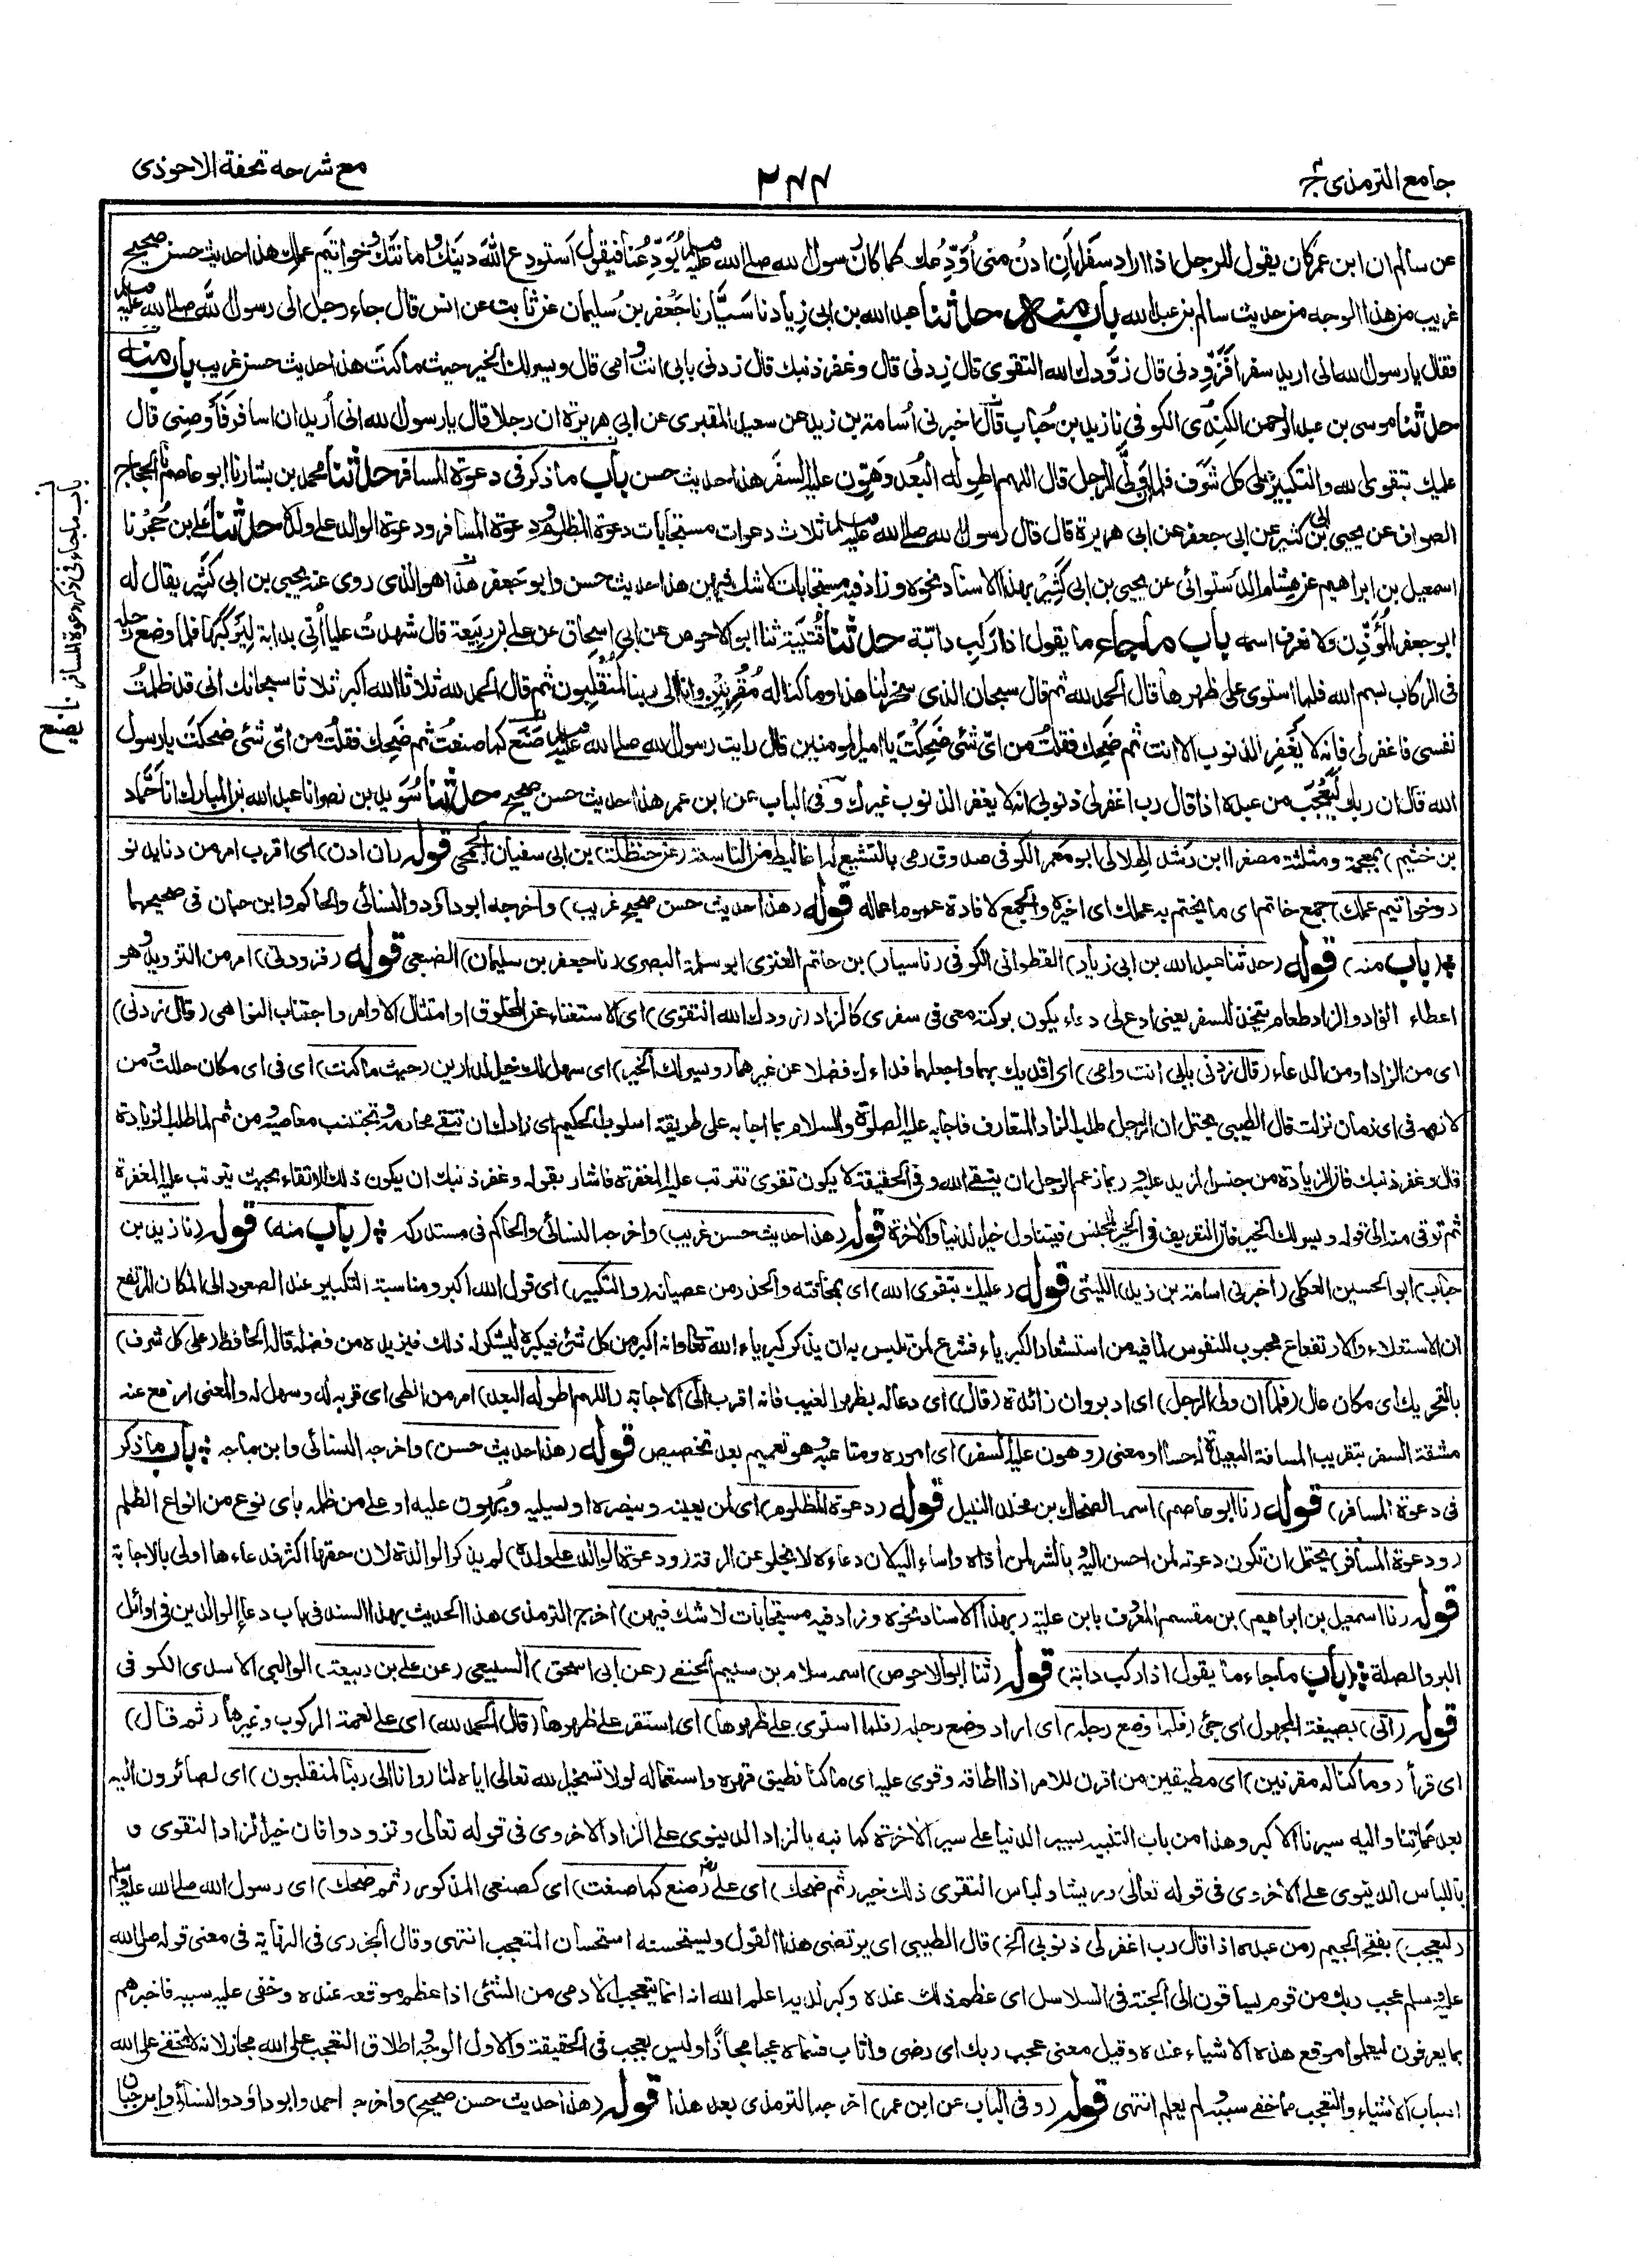 جامع الترمذى ج٤
٢٤٤
مع شرحه تحفة الاحوذى
عن سالم ان ابن عمر كان يقول للرجل اذا اراد سفرا اَنِ ادنُ منى اُوَدِّعك كما كان رسول الله صلى الله عليه وسلم يُوَدِّعُنا فيقول اَستودع اللهَ دينَك وامانتَك وخواتيمَ عملك هذا حديث حسن صحيح
غريب من هذا الوجه من حديث سالم بن عبد الله باب منه حدثنا عبد الله بن ابى زِياد نا سَيَّار نا جَعْفر بن سُليمان عن ثابت عن انس قال جاء رجل الى رسول الله صلى الله عليه وسلم
فقال يا رسول الله انى اريد سفرا فَزَوِّدنى قال زَوَّدك الله التقوى قال زِدنى قال وغفر ذنبك قال زدنى بابى انت وامى قال ويسر لك الخير حيث ما كنتَ هذا حديث حسن غريب باب منه
حدثنا موسى بن عبد الرحمن الكِندى الكوفى نا زيد بن حُباب قال اخبرنى اُسامة بن زيد عن سعيد المقبرى عن ابى هريرة ان رجلا قال يا رسول الله انى اُريد ان اسافر فَأَوصِنى قال
عليك بتقوى الله والتكبير على كل شَرَف فلما ان وَلَّى الرجل قال اللهم اطوله البُعد وهَوِّن عليه السفَر هذا حديث حسن باب ما ذكر فى دعوة المسافر حدثنا محمد بن بشار نا ابو عاصم نا الحجاج
الصواف عن يحيى بن ابى كثير عن ابى جعفر عن ابى هريرة قال قال رسول الله صلى الله عليه وسلم ثلاث دعوات مستجابات دعوة المظلوم ودعوة المسافر ودعوة الوالد على ولده حدثنا على بن حُجْر نا
اسمعيل بن ابراهيم عن هشام الدَستوائى عن يحيى بن ابى كَثِيْر بهذا الاسناد نحوه وزاد فيه مستجابات لا شك فيهن هذا حديث حسن وابو جعفر هذا هو الذى روى عنه يحيى بن ابى كَثِير يقال له
ابو جعفر المُؤَذِّن ولا نعرف اسمه باب ما جاء ما يقول اذا رَكِب دابّة حدثنا قُتَيبَة ثنا ابو الاحوص عن ابى اِسحاق عن على بن رَبِيْعة قال شهدتُ عليا اُتِى بدابة لِيَركَبَها فلما وضع رجله
فى الركاب بسم الله فلما استوى على ظهرها قال الحمد لله ثم قال سبحان الذى سخر لنا هذا وما كنا له مُقْرِنِيْن وانا الى ربنا لمُنْقَلِبون ثم قال الحمد لله ثلاثا الله اكبر ثلاثا سبحانك انى قد ظلمتُ
نفسى فاغفر لى فانه لا يَغْفِر الذنوب الا انت ثم ضَحِك فقلتُ من اىِّ شئى ضَحِكْتَ يا امير المومنين قال رايت رسول الله صلى الله عليه وسلم صَنَع كما صنعتُ ثم ضَحِك فقلتُ من اىّ شئى ضحكتَ يا رسول
الله قال ان ربك لَيَعْجَبُ من عبده اذا قال رب اغفر لى ذنوبى انه لا يغفر الذنوب غيرك وفى الباب عن ابن عمر هذا حديث حسن صحيح حدثنا سُوَيد بن نصر انا عبد الله بن المبارك انا حَمَّاد
باب ما جاء فى ذكر دعوة المسافر
نا
يصنع
بن خثيم) بمعجمة ومثلثة مصغرا ابن رَشد الهلالى ابو معمر الكوفى صدوق رمى بالتشيع له اغاليط من التاسعة (عن حنظلة) بن ابى سفيان الجمحى قوله (ان ادن) اى اقرب امر من دنا يدنو
(وخواتيم عملك) جمع خاتم اى ما يختم به عملك اى اخيره والجمع لافادة عموم اعماله قوله (هذا حديث حسن صحيح غريب) واخرجه ابو داؤد والنسائى والحاكم وابن حبان فى صحيحهما
(باب منه) قوله (حدثنا عبد الله بن ابى زياد) القطوانى الكوفى (نا سيار) بن حاتم العنزى ابو سلمة البصرى (نا جعفر بن سليمان) الضبعى قوله (فزودنى) امر من التزويد وهو
اعطاء الزاد والزاد طعام يتخذ للسفر يعنى ادع لى دعاء يكون بركته معى فى سفرى كالزاد (زودك الله التقوى) اى الاستغناء عن المخلوق او امتثال الاوامر واجتناب النواهى (قال زدنى)
اى من الزاد او من الدعاء (قال زدنى بابى انت وامى) اى افديك بهما واجعلهما فداءك فضلا عن غيرهما (ويسر لك الخير) اى سهل لك خير الدارين (حيث ما كنت) اى فى اى مكان حللت ومن
لازمه فى اى زمان نزلت قال الطيبى يحتمل ان الرجل طلب الزاد المتعارف فاجابه عليه الصلوة والسلام بما اجابه على طريقة اسلوب الحكيم اى زادك ان تتقى محارمه وتجتنب معاصيه ومن ثم لما طلب الزيادة
قال وغفر ذنبك فان الزيادة من جنس المزيد عليه وربما زعم الرجل ان يتقى الله وفى الحقيقة لا يكون تقوى تترتب عليه المغفرة فاشار بقوله وغفر ذنبك ان يكون ذلك الاتقاء بحيث يترتب عليه المغفرة
ثم ترقى منه الى قوله ويسر لك الخير فان التعريف فى الخير للجنس فيتناول خير الدنيا والاخرة قوله (هذا حديث حسن غريب) واخرجه النسائى والحاكم فى مستدركه (باب منه) قوله (نا زيد بن
حباب) ابو الحسين العكلى (اخبرنى اسامة بن زيد) الليثى قوله (عليك بتقوى الله) اى بمخافته والحذر من عصيانه (والتكبير) اى قول الله اكبر ومناسبة التكبير عند الصعود الى المكان المرتفع
ان الاستعلاء والارتفاع محبوب للنفوس لما فيه من استشعار الكبرياء فشرع لمن تلبس به ان يذكر كبرياء الله تعالى وانه اكبر من كل شئى فيكبره ليشكر له ذلك فيزيده من فضله قاله الحافظ (على كل شرف)
بالتحريك اى مكان عال (فلما ان ولى الرجل) اى ادبر وان زائدة (قال) اى دعا له بظهر الغيب فانه اقرب الى الاجابة (اللهم اطوله البعد) امر من الطى اى قربه له وسهل له والمعنى ارفع عنه
مشقة السفر بتقريب المسافة البعيدة له حسا او معنى (وهون عليه السفر) اى اموره ومتاعبه وهو تعميم بعد تخصيص قوله (هذا حديث حسن) واخرجه النسائى وابن ماجه (باب ما ذكر
فى دعوة المسافر) قوله (نا ابو عاصم) اسمه الضحاك بن مخلد النبيل قوله (دعوة المظلوم) اى لمن يعينه وينصره او يسليه ويهون عليه او على من ظلمه باى نوع من انواع الظلم
(ودعوة المسافر) يحتمل ان تكون دعوته لمن احسن اليه وبالشر لمن اذاه واساء اليه لان دعاءه لا يخلو عن الرقة (ودعوة الوالد على ولده) لم يذكر الوالدة لان حقها اكثر فدعاءها اولى بالاجابة
قوله (نا اسمعيل بن ابراهيم) بن مقسم المعروف بابن علية (بهذا الاسناد نحوه وزاد فيه مستجابات لا شك فيهن) اخرج الترمذى هذا الحديث بهذا السند فى باب دعاء الوالدين فى اوائل
البر والصلة (باب ما جاء ما يقول اذا ركب دابة) قوله (ثنا ابو الاحوص) اسمه سلام بن سليم الحنفى (عن ابى اسحق) السبيعى (عن على بن ربيعة) الوالبى الاسدى الكوفى
قوله (اتى) بصيغة المجهول اى جئ (فلما وضع رجله) اى اراد وضع رجله (فلما استوى على ظهرها) اى استقر على ظهرها (قال الحمد لله) اى على نعمة الركوب وغيرها (ثم قال)
اى قرأ (وما كنا له مقرنين) اى مطيقين من اقرن للامر اذا اطاقه وقوى عليه اى ما كنا نطيق قهره واستعماله لولا تسخير الله تعالى اياه لنا (وانا الى ربنا لمنقلبون) اى لصائرون اليه
بعد مماتنا واليه سيرنا الاكبر وهذا من باب التنبيه بسير الدنيا على سير الاخرة كما نبه بالزاد الدنيوى على الزاد الاخروى فى قوله تعالى وتزودوا فان خير الزاد التقوى و
باللباس الدنيوى على الاخروى فى قوله تعالى وريشا ولباس التقوى ذلك خير (ثم ضحك) اى على رض (صنع كما صنعت) اى كصنعى المذكور (ثم ضحك) اى رسول الله صلى الله عليه وسلم
(ليعجب) بفتح الجيم (من عبده اذا قال رب اغفر لى ذنوبى الخ) قال الطيبى اى يرتضى هذا القول ويستحسنه استحسان المتعجب انتهى وقال الجزرى فى النهاية فى معنى قوله صلى الله
عليه وسلم عجب ربك من قوم يساقون الى الجنة فى السلاسل اى عظم ذلك عنده وكبر لديه اعلم الله انه انما يتعجب الادمى من الشئى اذا عظم موقعه عنده وخفى عليه سببه فاخبرهم
بما يعرفون ليعلموا موقع هذه الاشياء عنده وقيل معنى عجب ربك اى رضى واثاب فسماه عجبا مجازًا وليس بعجب فى الحقيقة والاول الوجه واطلاق التعجب على الله مجاز لانه لا يخفى على الله
اسباب الاشياء والتعجب مما خفى سببه ولم يعلم انتهى قوله (وفى الباب عن ابن عمر) اخرجه الترمذى بعد هذا قوله (هذا حديث حسن صحيح) واخرجه احمد وابو داؤد والنسائى وابن حبان